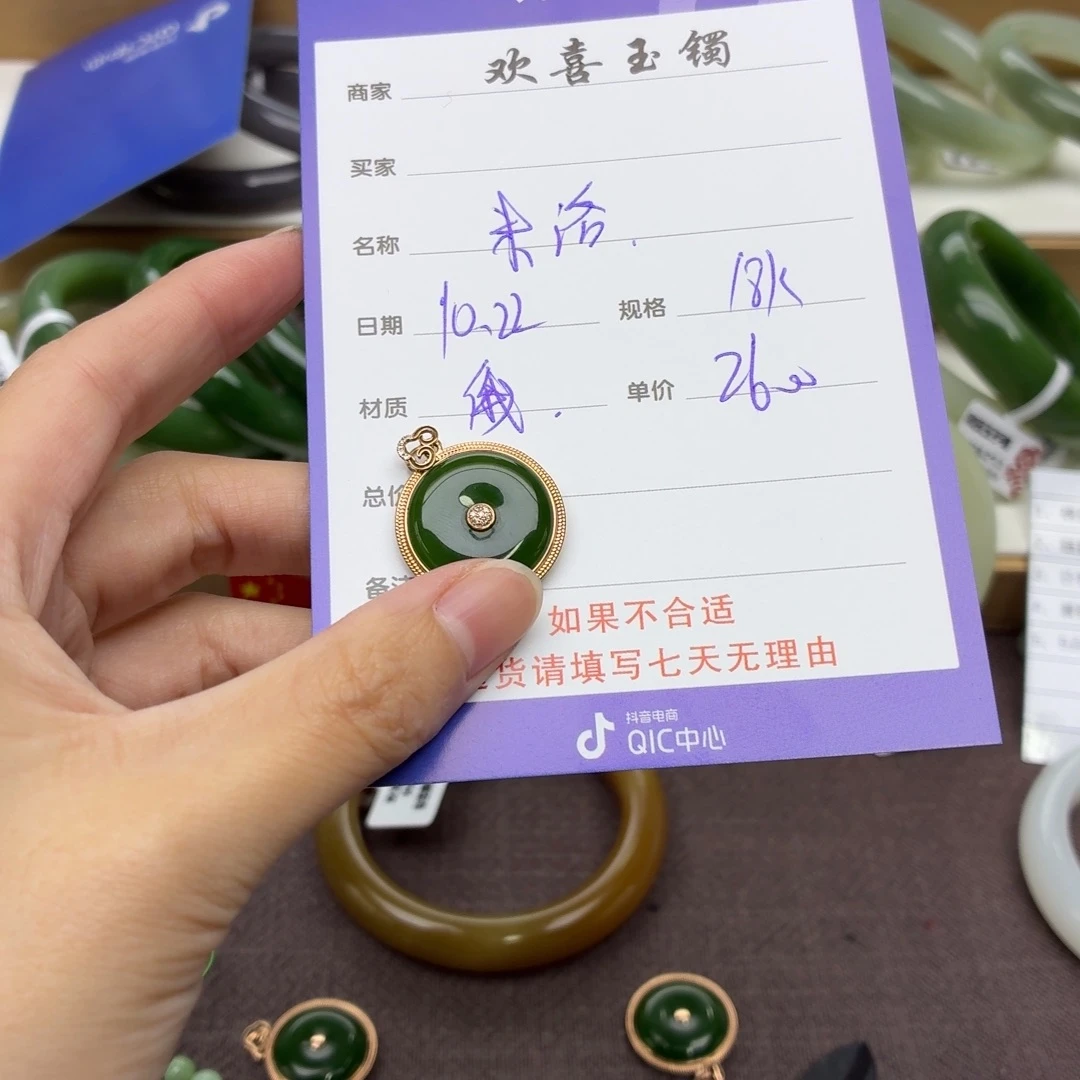 商家 欢喜玉镯
买家
名称 未洛.
日期 10.22 规格 18k
材质 俄. 单价 2600
总价
备注
如果不合适
货请填写七天无理由
抖音电商
QIC中心